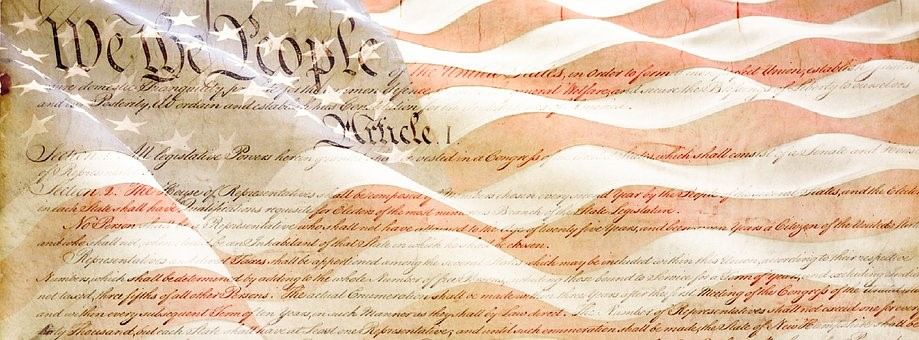 We the People
of the United States, in Order to form a more perfect Union, establish
insure domestic Tranquility, provide for the common defence, general Welfare, and secure the Blessings of Liberty to ourselves
and our Posterity, do ordain and establish this Constitution
Article. I.
Section. 1. All legislative Powers herein granted shall be vested in a Congress which shall consist of a Senate and
of Representatives
Section. 2. The House of Representatives shall be composed of Members chosen every second Year by the People of the several States, and the Electors
in each State shall have Qualifications requisite for Electors of the most numerous Branch of the State Legislature.
No Person shall be a Representative who shall not have attained to the Age of twenty five Years, and been seven Years a Citizen of the United States
and who shall not, when elected, be an Inhabitant of that State in which he shall be chosen.
Representatives and direct Taxes shall be apportioned among the several States which may be included within this Union, according to their respective
Numbers, which shall be determined by adding to the whole Number of free Persons, including those bound to Service for a Term of Years, and excluding Indians
not taxed, three fifths of all other Persons. The actual Enumeration shall be made within three Years after the first Meeting of the Congress of the United
and within every subsequent Term of ten Years, in such Manner as they shall by Law direct. The Number of Representatives shall not exceed one for every
thirty Thousand, but each State shall have at Least one Representative; and until such enumeration shall be made, the State of New Hampshire shall